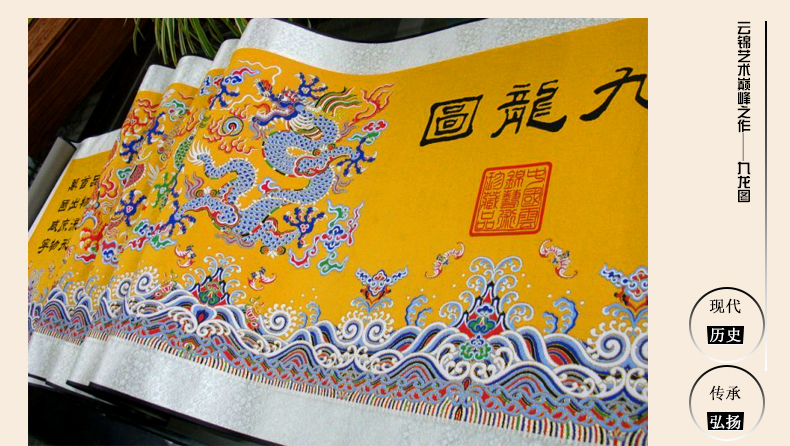 云锦艺术巅峰之作——九龙图
九龍圖
中國雲
錦藝術
珍藏品
现代
历史
传承
弘扬